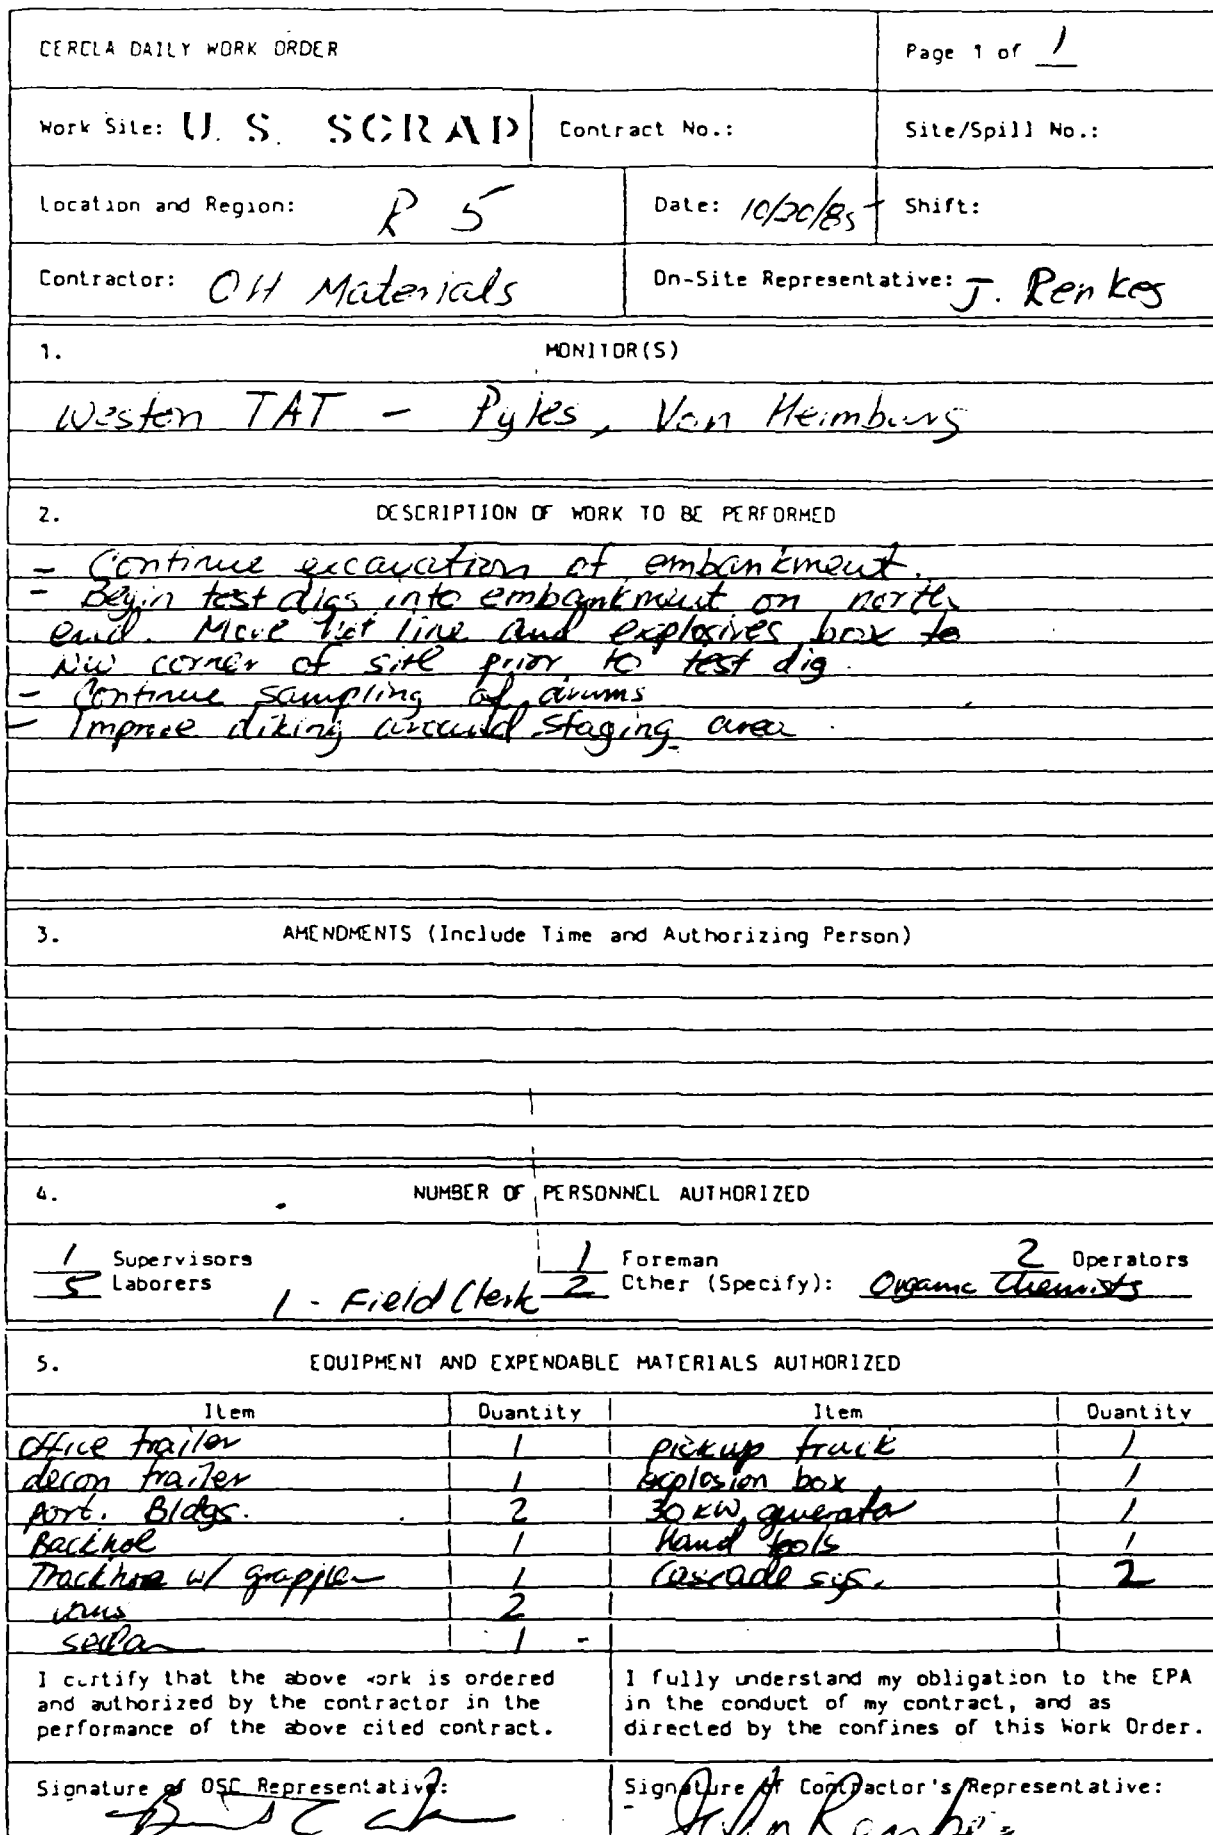 CERCLA DAILY WORK ORDER
Page 1 of 1
Work Site: U. S. SCRAP
Contract No.:
Site/Spill No.:
Location and Region: R 5
Date: 10/20/85
Shift:
Contractor: OH Materials
On-Site Representative: J. Renkes
1. MONITOR(S)
Weston TAT - Pyles, Von Heimburg
2. DESCRIPTION OF WORK TO BE PERFORMED
- Continue excavation of embankment.
- Begin test digs into embankment on north
end. Move hot line and explosives box to
NW corner of site prior to test dig.
- Continue sampling of drums
- Improve diking around staging area.
3. AMENDMENTS (Include Time and Authorizing Person)
4. NUMBER OF PERSONNEL AUTHORIZED
1 Supervisors 1 Foreman 2 Operators
5 Laborers 1 - Field Clerk 2 Other (Specify): Organic Chemists
5. EQUIPMENT AND EXPENDABLE MATERIALS AUTHORIZED
Item Quantity Item Quantity
office trailer 1 pickup truck 1
decon trailer 1 explosion box 1
port. Bldgs. 2 30 KW generator 1
Backhoe 1 Hand tools 1
Trackhoe w/ grappler 1 Cascade sys. 2
vans 2
sedan 1
I certify that the above work is ordered
and authorized by the contractor in the
performance of the above cited contract.
I fully understand my obligation to the EPA
in the conduct of my contract, and as
directed by the confines of this Work Order.
Signature of OSC Representative:
Signature of Contractor's Representative: